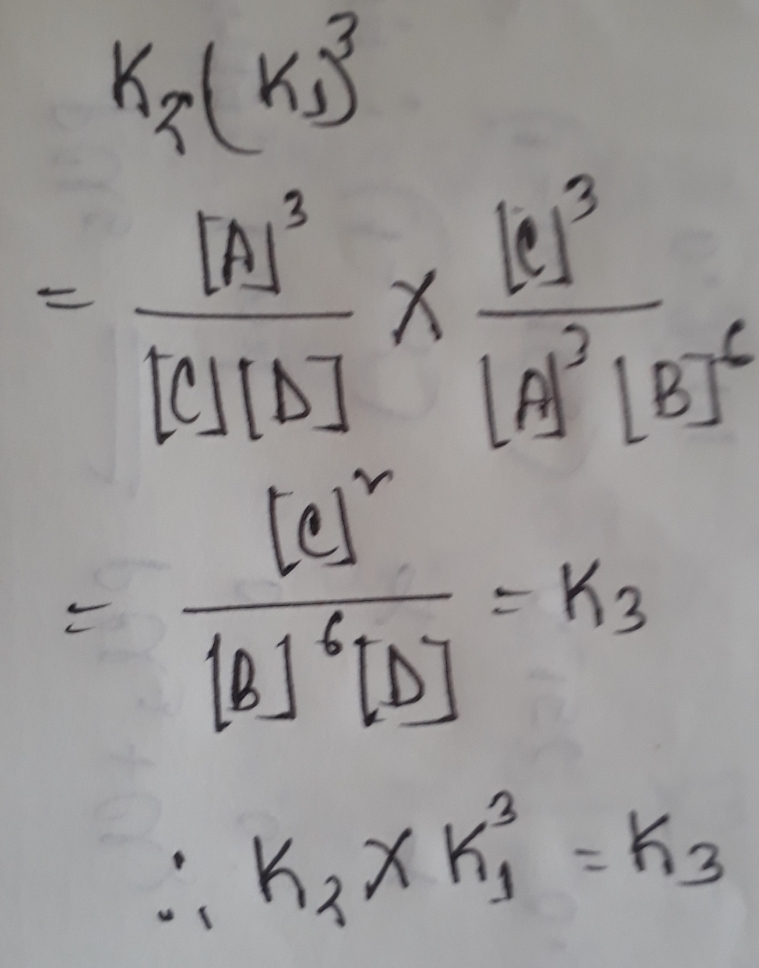 K₂(K₁)³
= [A]³ / [C][D] × [C]³ / [A]³ [B]⁶
= [C]² / [B]⁶ [D] = K₃
∴ K₂ × K₁³ = K₃